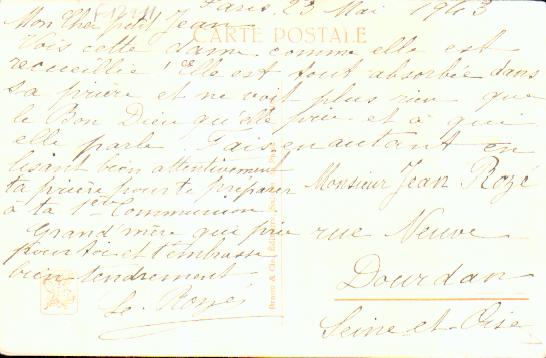 Paris 23 Mai 1943
Mon Cher petit Jean
CARTE POSTALE
Vois cette dame comme elle est
recueillie ! Elle est tout absorbée dans
sa prière et ne voit plus rien que
le Bon Dieu qu'elle prie et à qui
elle parle. Fais en autant en
lisant bien attentivement
ta prière pour te préparer
à ta 1ère Communion
Grand'mère qui prie
pour toi et t'embrasse
bien tendrement
Braun & Cie, Éditeurs
Monsieur Jean Rozé
rue Neuve
Dourdan
Seine-et-Oise